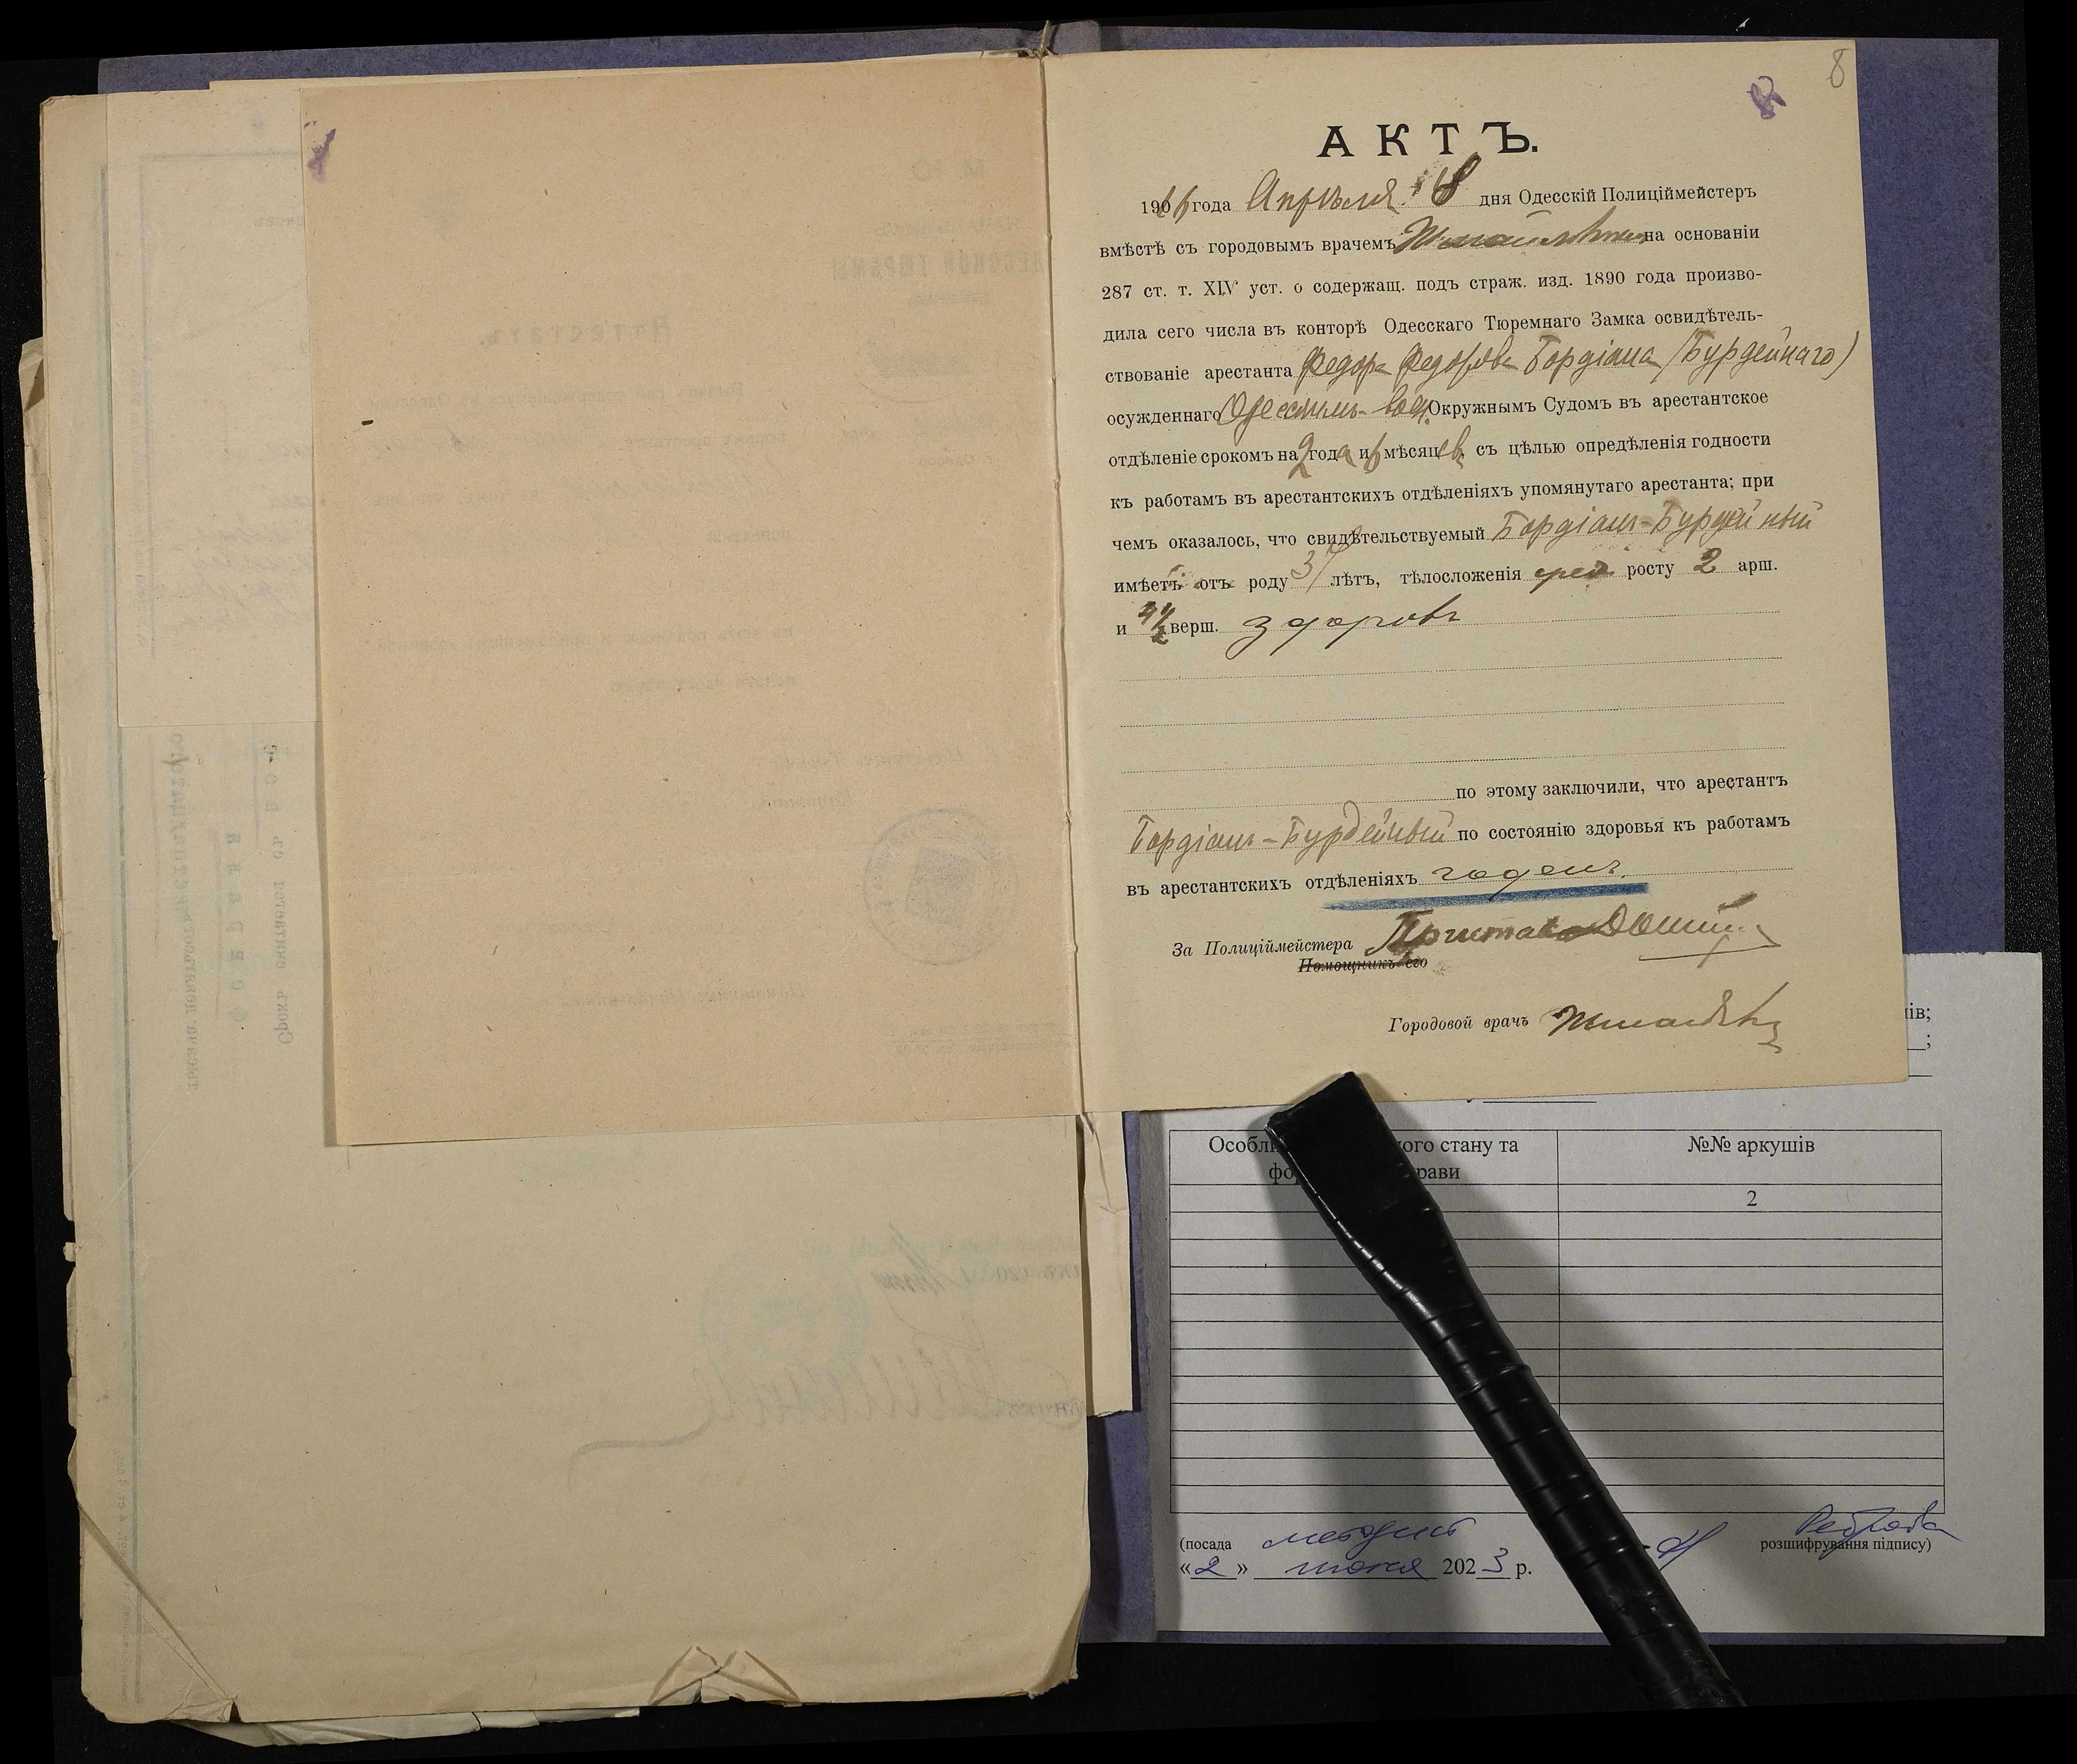 8
АКТЪ.
года Апрѣля 18 дня Одесскій Полиціймейстеръ
вмѣстѣ съ городовымъ врачемъ на основаніи
287 ст. т. XIV уст. о содержащ. подъ страж. изд. 1890 года произво-
дила сего числа въ конторѣ Одесскаго Тюремнаго Замка освидѣтель-
ствованіе арестанта Федора Федорова Бордіана (Бурдейнаго)
осужденнаго Одесскимъ Окружнымъ Судомъ въ арестантское
отдѣленіе срокомъ на 2 года и 6 мѣсяцевъ съ цѣлью опредѣленія годности
къ работамъ въ арестантскихъ отдѣленіяхъ упомянутаго арестанта; при
чемъ оказалось, что свидѣтельствуемый Бордіанъ-Бурдейный
имѣетъ отъ роду 37 лѣтъ, тѣлосложенія сред росту 2 арш.
и 4 1/2 верш. здоровъ
по этому заключили, что арестантъ
Бордіанъ-Бурдейный по состоянію здоровья къ работамъ
въ арестантскихъ отдѣленіяхъ годенъ.
За Полиціймейстера Приставъ
Помощникъ его
Городовой врачъ
ів;
ого стану та
№№ аркушів
рави
2
(посада методист
розшифрування підпису)
«2» июня 2023 р.